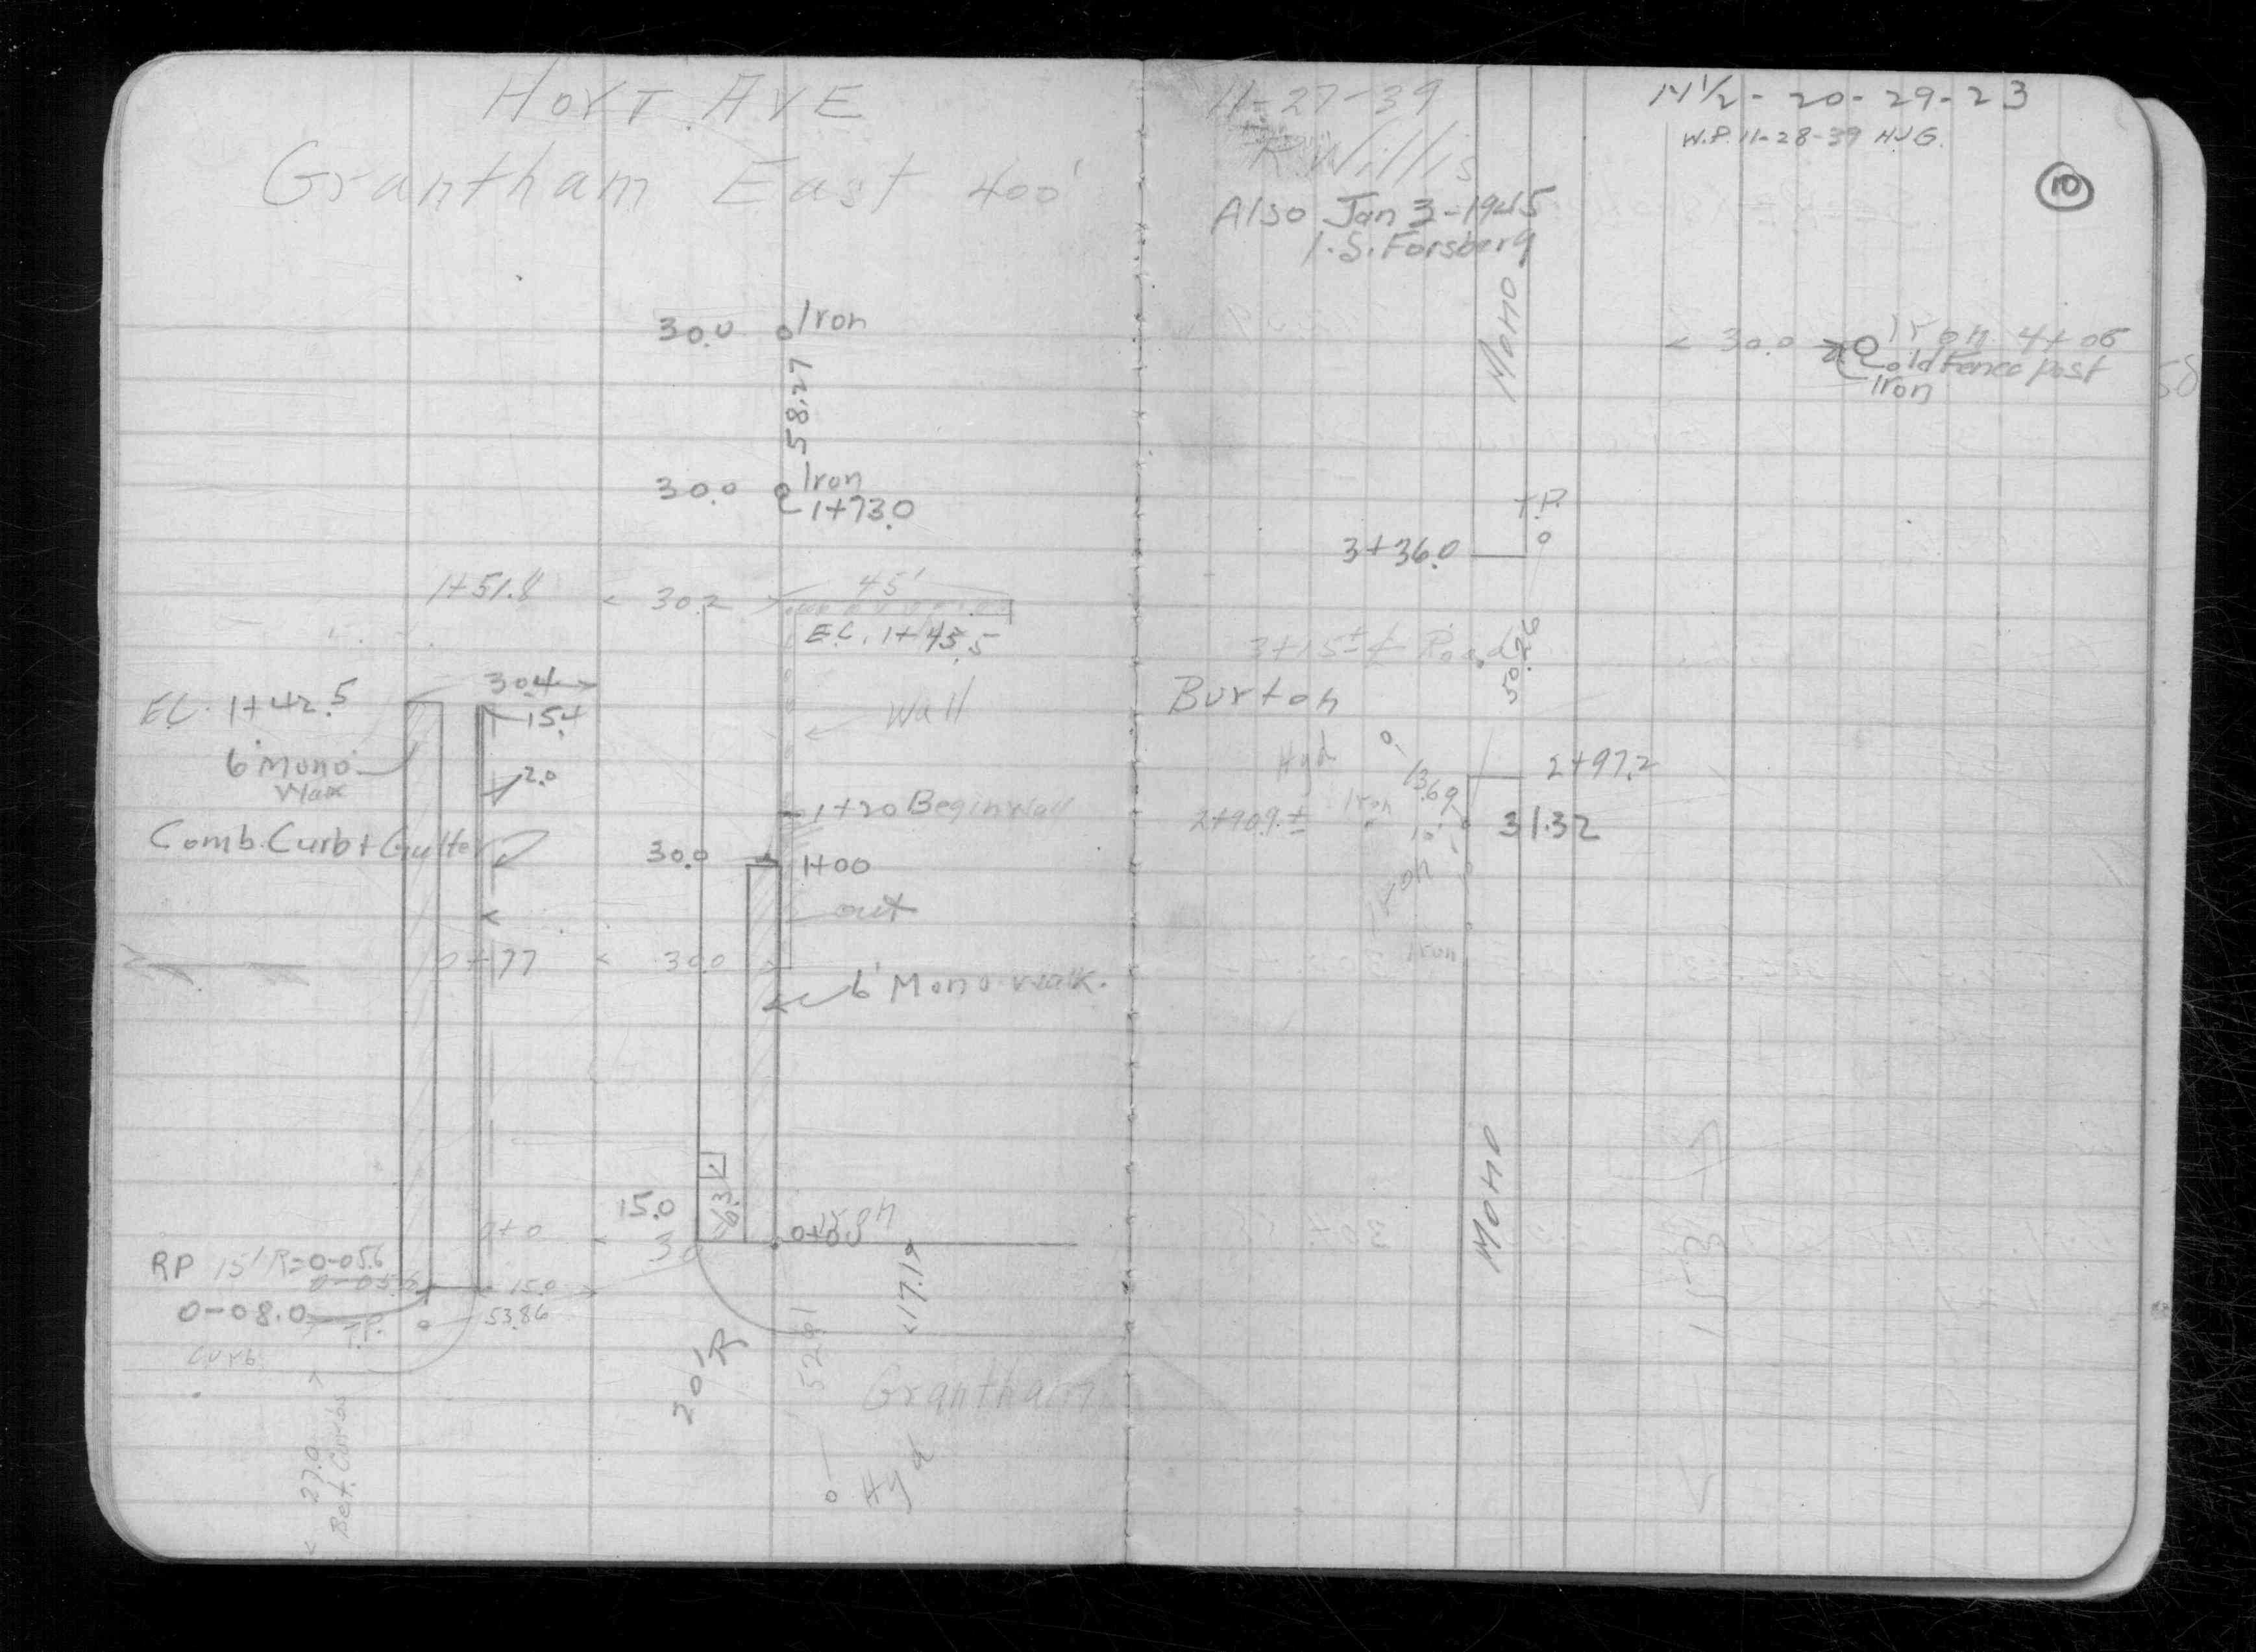 HOYT AVE
Grantham East 400'
30.0 Iron
58.27
30.0 Iron
1+73.0
1+51.8 30.2 45'
E.C. 1+45.5
30.4
EC. 1+42.5
15.4
Wall
6' Mono
2.0
Walk
1+20 Begin Wall
Comb. Curb + Gutter
30.0 1+00
out
0+77 30.0
6' Mono Walk.
6.3
15.0
0+0 30 0+00
Iron
RP 15' R=0-05.6
0-05.6 15.0
0-08.0 53.86
T.P.
17.1
Curb
20' R
52.61
Grantham
27.0
Bet. Curbs
Hyd
11-27-39
R. Willis
Also Jan 3-1945
I.S. Forsberg
N 1/2 - 20-29-23
W.P. 11-28-39 HJG.
10
Mono
30.0 Iron 4+06
old Fence post
Iron
T.P.
3+36.0
3+15± ₵ Road
50.26
Burton
Hyd
13.69
2+97.2
2+90.9± Iron
10'
31.32
Iron
Iron
Mono
58